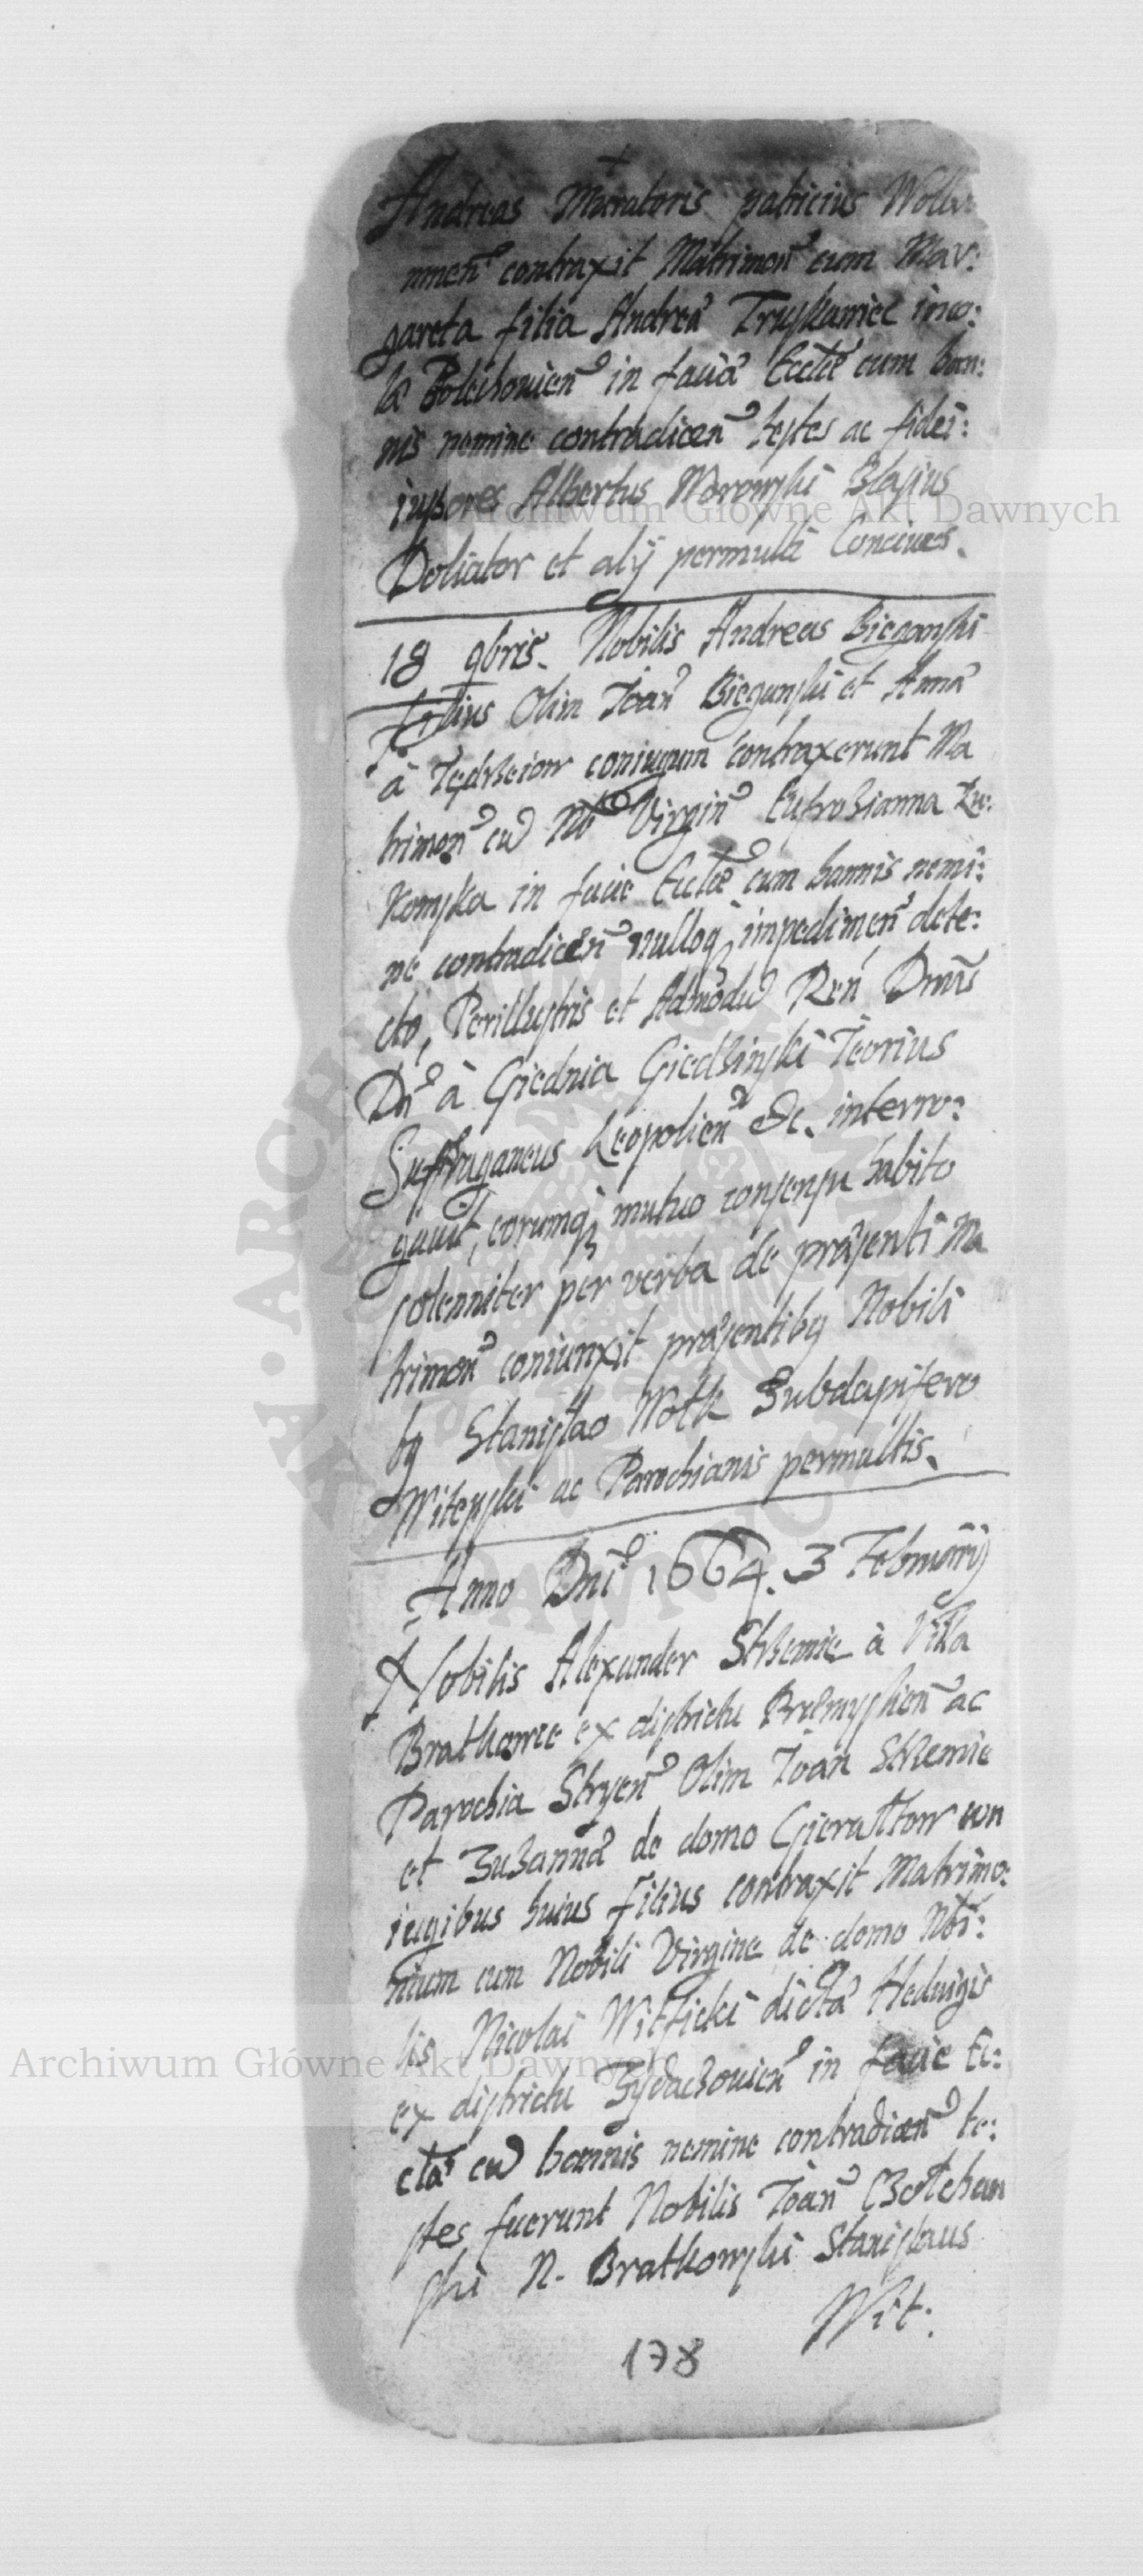 Andreas Muratoris patricius
nmen̄ contraxit Matrimon̄ cum Mar:
gareta filia Andreæ Truskawiec inco:
læ Bolechowien̄ in facie Ecctiæ cum ban:
nis nemine contradicen̄ testes ac fidei:
iussores Albertus Morowski Blasius
Doliator et alij permulti Concives.
18 9bris. Nobilis Andreas Bieganski
Filius Olim Joan̄ Bieganski et Annæ
à coniugum contraxerunt Ma
trimon̄ cū Nob Virgin̄ Eufrozianna Zu:
Komska in facie Ecctiæ cum bannis nemi:
ne contradicen̄ nulloq; impedimen̄ dete:
cto, Perillustris et Admodū Ren̄ Dm̄s
Dn̄ à Giednia Giedzinski
Suffraganeus Leopolien̄ &c. interro:
gavit, eorumq; mutuo consensu habito
solenniter per verba de præsenti Ma
trimon̄ coniunxit præsentibq Nobili
bq Stanislao Woth Subdapifero
Witepski ac Parochianis permultis.
Anno Dn̄i 1664. 3 Februarij
Nobilis Alexander Strzemie à Villa
Bratkowce ex districtu Przemyslien̄ ac
Parochia Stryen̄ Olim Joan Strzemie
et Zuzannæ de domo Gierałtow con
iugibus huius Filius contraxit Matrimo:
nium cum Nobili Virgine de domo Nobi:
lis Nicolai Witficki dictâ Hedvigis
ex districtu Zydaczovien̄ in facie Ec:
ctæ cū bannis nemine contradicen̄ te:
stes fuerunt Nobilis Joan̄
ski N. Bratkowski Stanislaus
Wit:
178
Archiwum Główne Akt Dawnych
Archiwum Główne Akt Dawnych